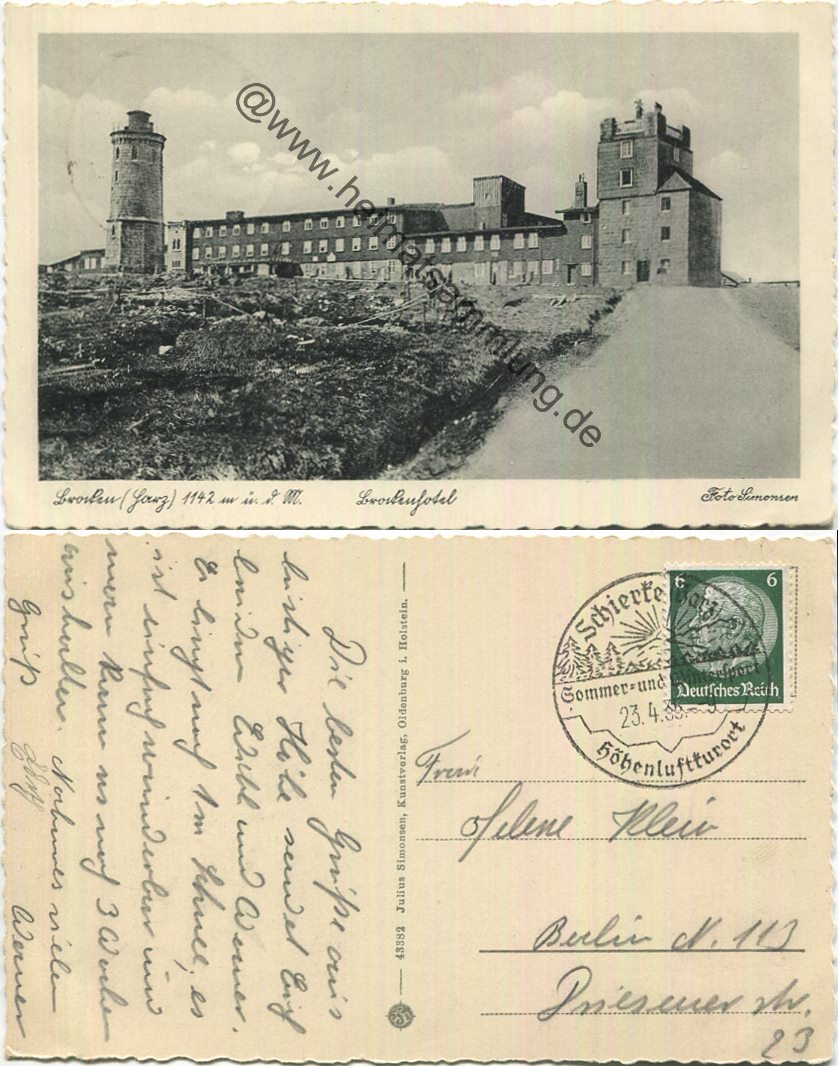 @www.heimatsammlung.de
Brocken (Harz) 1142 m ü. d. M. Brockenhotel Foto Simonsen
Die besten Grüße aus
luftiger Höhe sendet Euch
beiden Edith und Werner.
Es liegt noch 1 m Schnee, es
ist einfach wunderbar und
man kann es noch 3 Wochen
aushalten. Nochmals vielen
Gruß
Werner
43382 Julius Simonsen, Kunstverlag, Oldenburg i. Holstein.
Schierke Harz
Sommer- und Wintersport
23.4.38.-9
Höhenluftkurort
6 6
Deutsches Reich
Frau
Helene Klein
Berlin N. 113
Driesener Str.
23